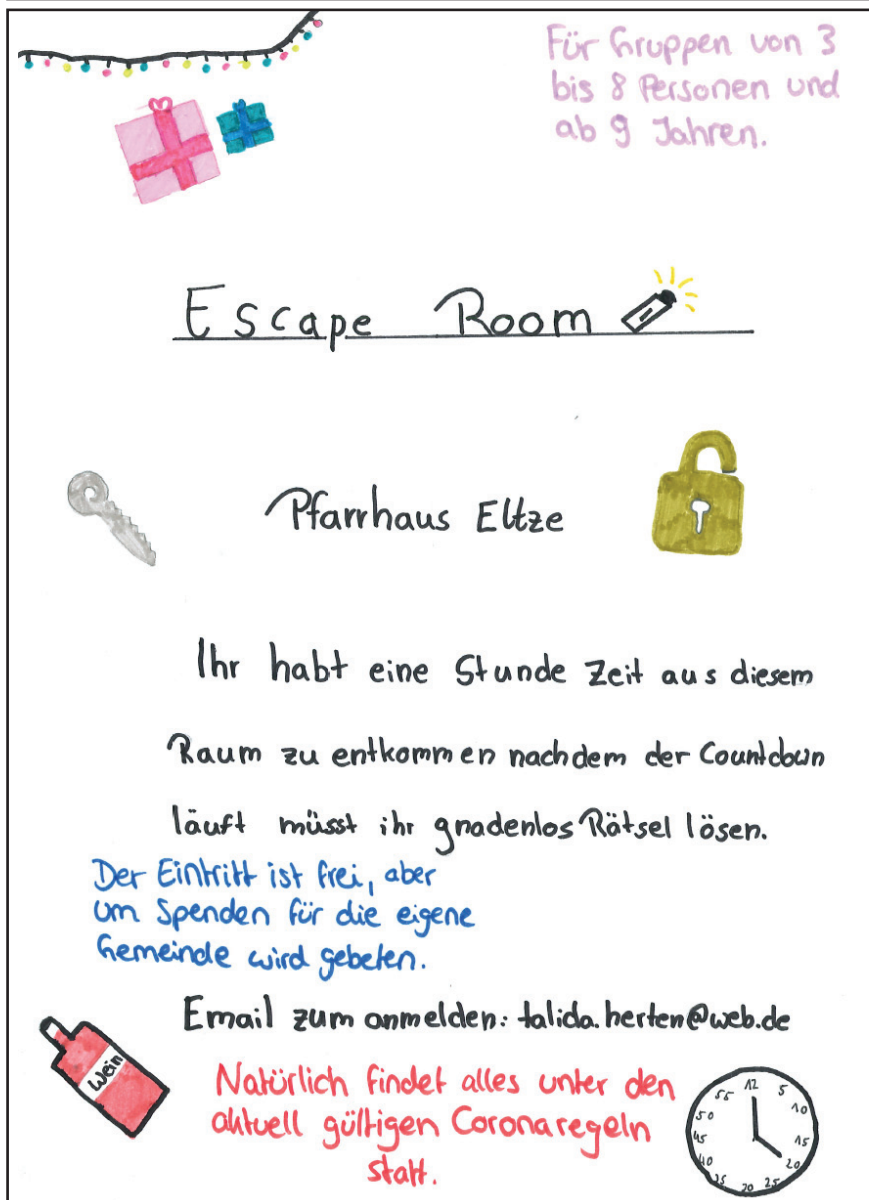 Für Gruppen von 3
bis 8 Personen und
ab 9 Jahren.
Escape Room
Pfarrhaus Eltze
Ihr habt eine Stunde Zeit aus diesem
Raum zu entkommen nachdem der Countdown
läuft müsst ihr gnadenlos Rätsel lösen.
Der Eintritt ist frei, aber
um Spenden für die eigene
Gemeinde wird gebeten.
Email zum anmelden: talida.herten@web.de
Wein
Natürlich findet alles unter den
aktuell gültigen Coronaregeln
statt.
12
5
10
15
20
25
30
35
40
45
50
55